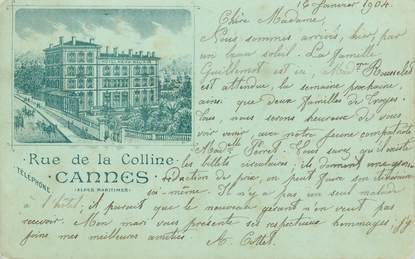 16 Janvier 1904.
Chère Madame,
Nous sommes arrivés, hier, par
un beau soleil. La famille
Guillemot est ici, Mad.e Rousselet
est attendue, la semaine prochaine,
ainsi que deux familles de Troyes.
Tous, nous serons heureux de vous
voir venir avec notre jeune compatriote
Mad.elle Perrot. Vous savez qu'il existe
les billets circulaires, ils donnent une gde
réduction de prix, on peut faire son itinéraire
soi-même. Il n'y a pas un seul malade
à l'hôtel; il paraît que le nouveau gérant n'en veut pas
recevoir. Mon mari vous présente ses respectueux hommages, j'y
joins mes meilleures amitiés. M. Collet.
Rue de la Colline
TÉLÉPHONE
CANNES
(ALPES MARITIMES)